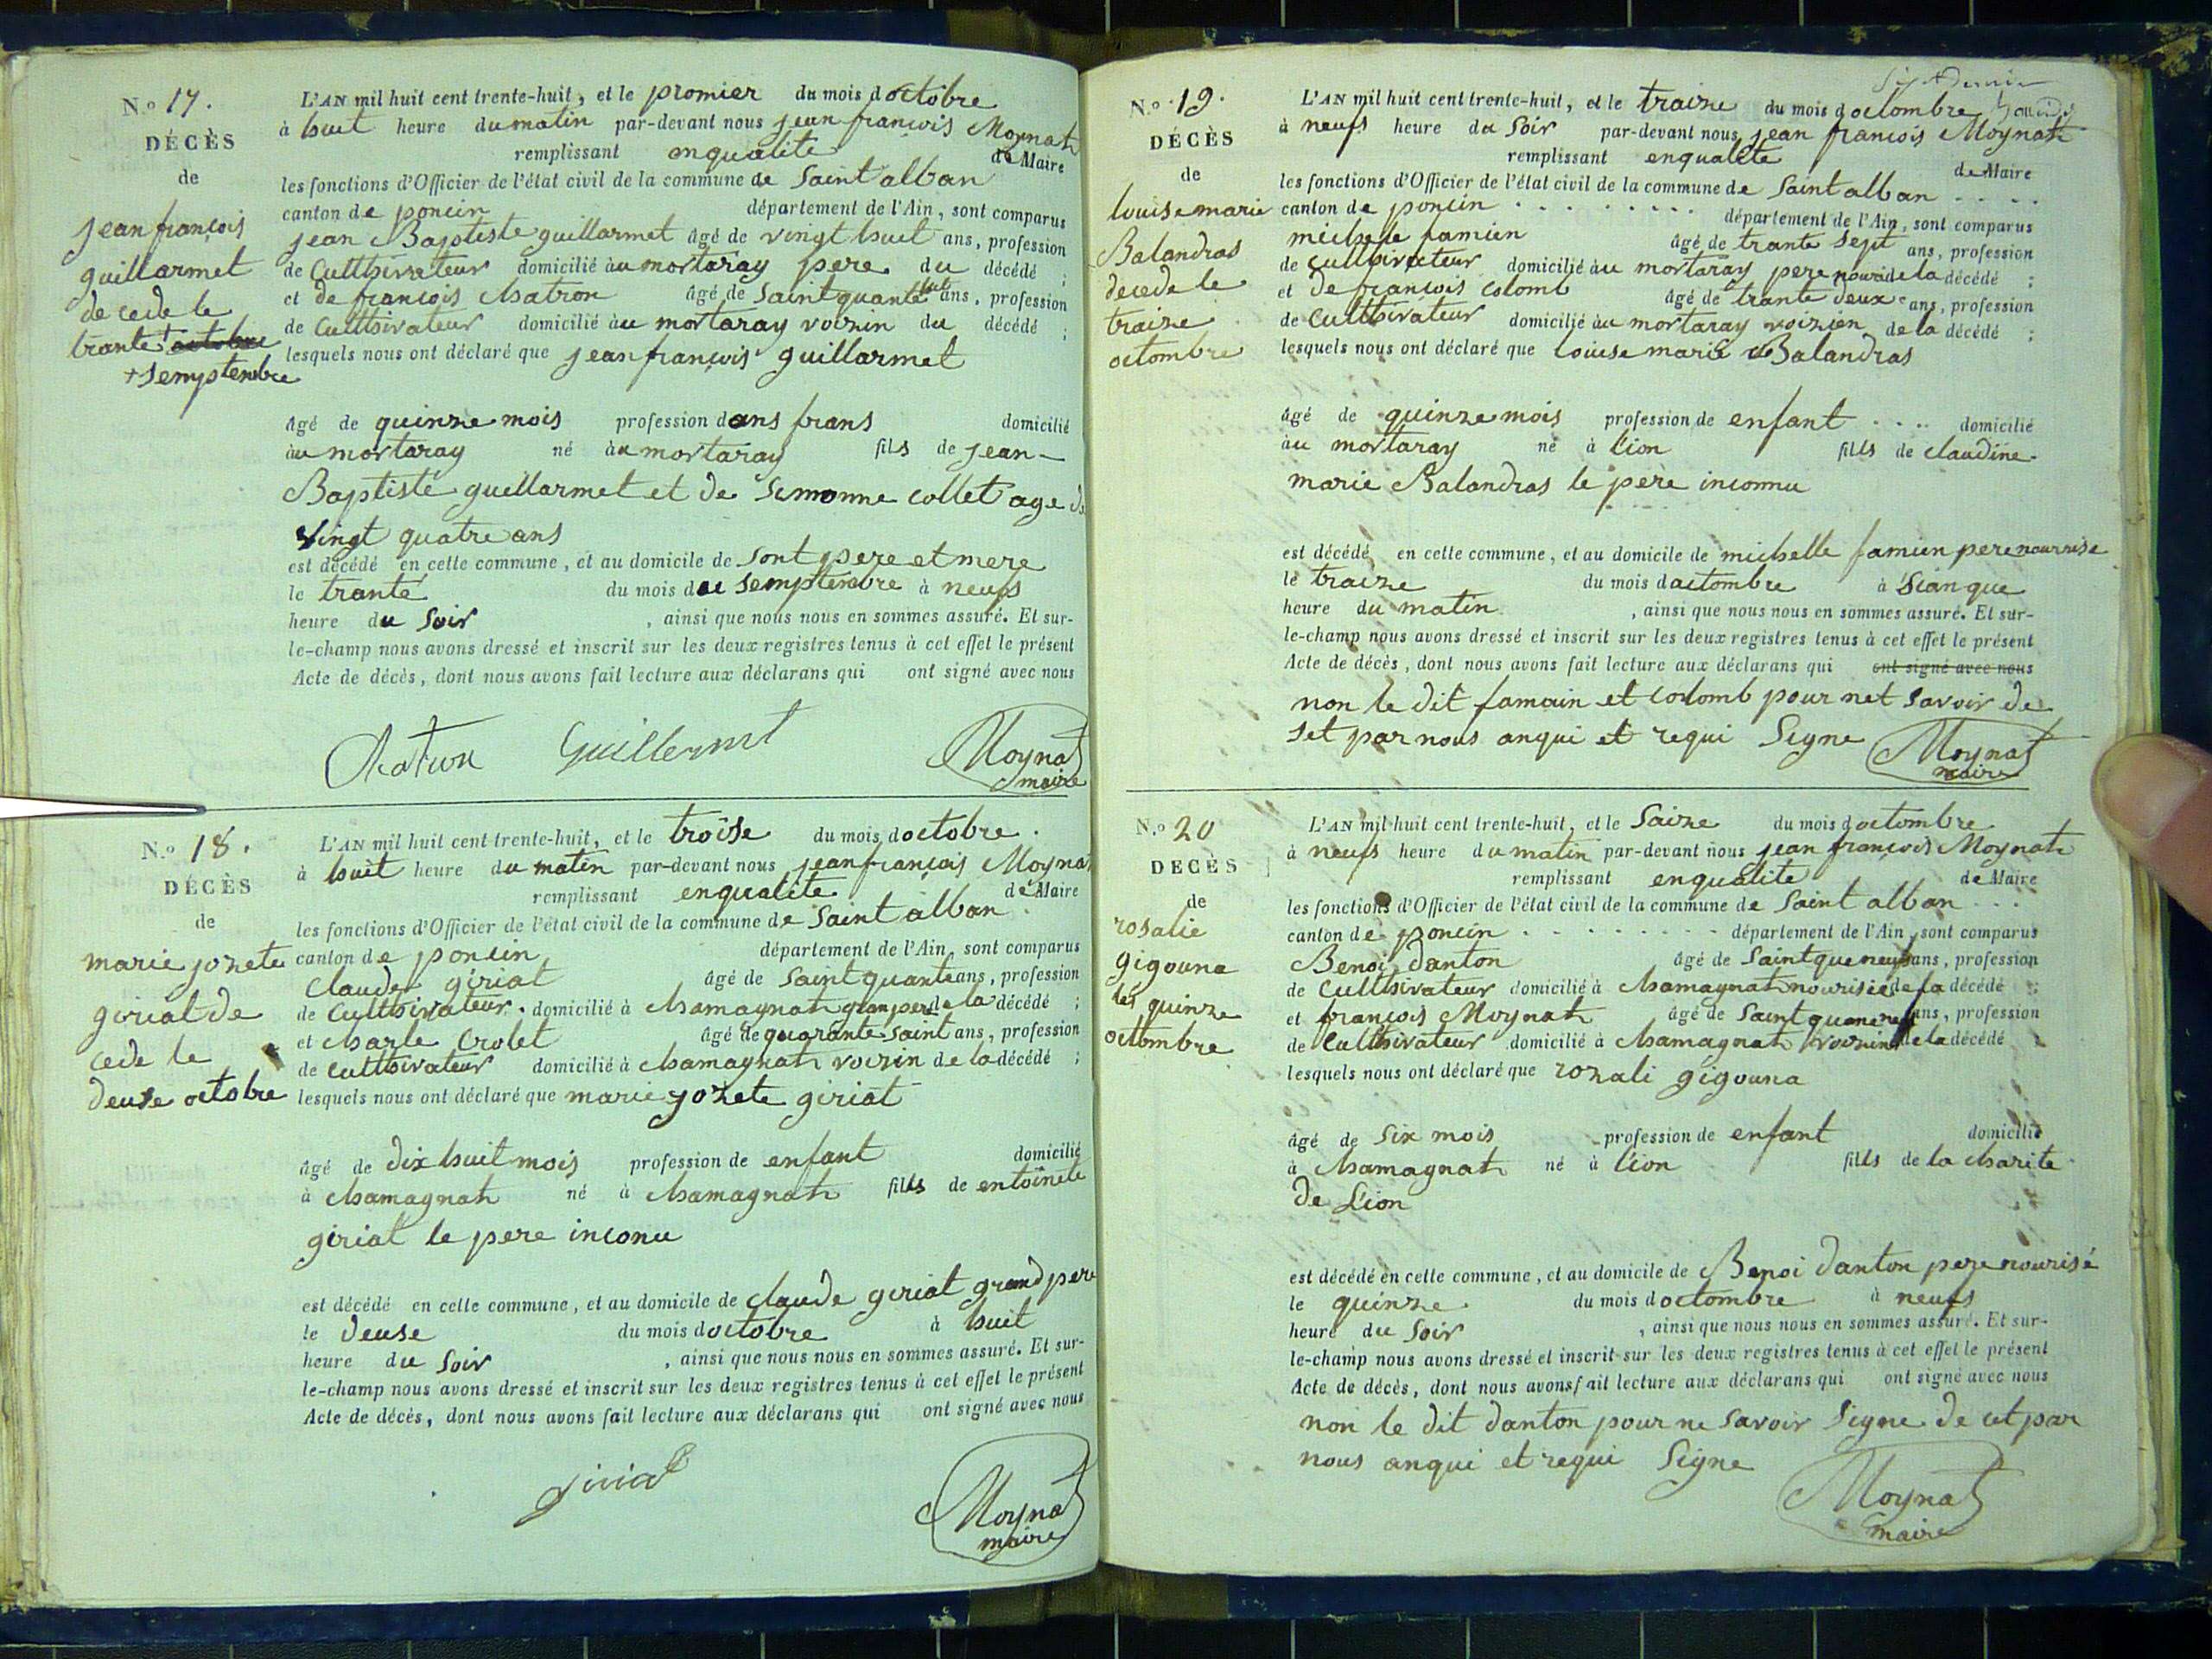 N.o 17.
DÉCÈS
de
jean françois
guillarmet
de cede le
trante octobre
+ semptembre
L'AN mil huit cent trente-huit, et le promier du mois d octobre
à huit heure du matin par-devant nous jean françois Moynat
remplissant enqualite de Maire
les fonctions d'Officier de l'état civil de la commune de Saint alban
canton de poncin département de l'Ain, sont comparus
jean Baptiste guillarmet âgé de vingt huit ans, profession
de Culthivateur domicilié àu mortaray pere du décédé ;
et de françois chatron âgé de Saintquante huit ans, profession
de Culthivateur domicilié àu mortaray voizin du décédé ;
lesquels nous ont déclaré que jean françois guillarmet
âgé de quinze mois profession dans frans domicilié
àu mortaray né àu mortaray fils de jean-
Baptiste guillarmet et de Simonne collet age de
vingt quatre ans
est décédé en cette commune, et au domicile de sont pere et mere
le trante du mois de semptembre à neufs
heure du soir , ainsi que nous nous en sommes assuré. Et sur-
le-champ nous avons dressé et inscrit sur les deux registres tenus à cet effet le présent
Acte de décès, dont nous avons fait lecture aux déclarans qui ont signé avec nous
Chatron Guillermet Moynat
maire
N.o 18.
DÉCÈS
de
marie jozete
giriat de
cede le
deuse octobre
L'AN mil huit cent trente-huit, et le troise du mois d octobre .
à huit heure du matin par-devant nous jean françois Moynat
remplissant enqualite de Maire
les fonctions d'Officier de l'état civil de la commune de Saint alban
canton de poncin département de l'Ain, sont comparus
Claude giriat âgé de Saintquante ans, profession
de Culthivateur . domicilié à chamagnat granpere de la décédé ;
et charle Crolet âgé de quarante Saint ans, profession
de culthivateur domicilié à chamagnat voizin de la décédé ;
lesquels nous ont déclaré que marie jozete giriat
âgé de dix huit mois profession de enfant domicilié
à chamagnat né à chamagnat fills de entoinete
giriat le pere inconu
est décédé en cette commune, et au domicile de claude giriat grand pere
le deuse du mois d octobre à huit
heure du soir , ainsi que nous nous en sommes assuré. Et sur-
le-champ nous avons dressé et inscrit sur les deux registres tenus à cet effet le présent
Acte de décès, dont nous avons fait lecture aux déclarans qui ont signé avec nous
giriat
Moynat
maire
N.o 19.
DÉCÈS
de
louise marie
Balandras
decede le
traize
octombre
L'AN mil huit cent trente-huit, et le traize du mois d octombre
à neufs heure du soir par-devant nous jean françois Moynat
remplissant enqualite de Maire
les fonctions d'Officier de l'état civil de la commune de Saint alban
canton de poncin département de l'Ain, sont comparus
michele famien âgé de trante sept ans, profession
de culthivateur domicilié àu mortaray pere nouri de la décédé ;
et de françois colomb âgé de trante deux ans, profession
de Culthivateur domicilié àu mortaray voizien de la décédé ;
lesquels nous ont déclaré que louise marie Balandras
âgé de quinze mois profession de enfant domicilié
àu mortaray né à lion fills de claudine
marie Balandras le père inconnu
est décédé en cette commune, et au domicile de michelle famien pere nourrise
le traize du mois d octombre à Sianque
heure du matin , ainsi que nous nous en sommes assuré. Et sur-
le-champ nous avons dressé et inscrit sur les deux registres tenus à cet effet le présent
Acte de décès, dont nous avons fait lecture aux déclarans qui ont signé avec nous
non le dit famain et colomb pour net savoir de
set par nous anqui et requi Signe Moynat
maire
N.o 20
DÉCÈS
de
rosalie
gigouna
le quinze
octombre
L'AN mil huit cent trente-huit, et le saize du mois d octombre
à neufs heure du matin par-devant nous jean françois Moynat
remplissant enqualite de Maire
les fonctions d'Officier de l'état civil de la commune de Saint alban
canton de poncin département de l'Ain, sont comparus
Benoi danton âgé de Saintqueneuf ans, profession
de Culthivateur domicilié à chamagnat nourisie de la décédé ;
et françois Moynat âgé de ans, profession
de Culthivateur domicilié à chamagnat voizin de la décédé
lesquels nous ont déclaré que rozali gigouna
âgé de six mois profession de enfant domicilié
à chamagnat né à lion fills de la charite
de Lion
est décédé en cette commune, et au domicile de Benoi danton pere nourisé
le quinze du mois d octombre à neufs
heure du soir , ainsi que nous nous en sommes assuré. Et sur-
le-champ nous avons dressé et inscrit sur les deux registres tenus à cet effet le présent
Acte de décès, dont nous avons fait lecture aux déclarans qui ont signé avec nous
non le dit danton pour ne savoir signe de cet par
nous anqui et requi Signe
Moynat
maire